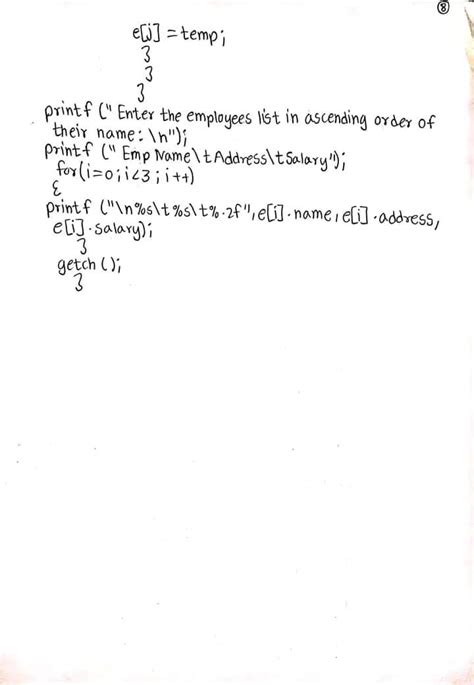 8
e[j] = temp;
}
}
}
printf (" Enter the employees list in ascending order of
their name: \n");
printf (" Emp Name\tAddress\tSalary");
for(i=0;i<3;i++)
{
printf ("\n%s\t%s\t%.2f", e[i].name, e[i].address,
e[i].salary);
}
getch ();
}